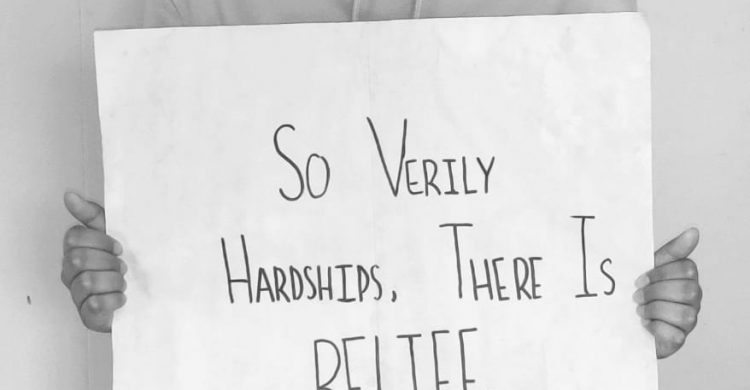 So Verily
Hardships, There Is
RELIEF